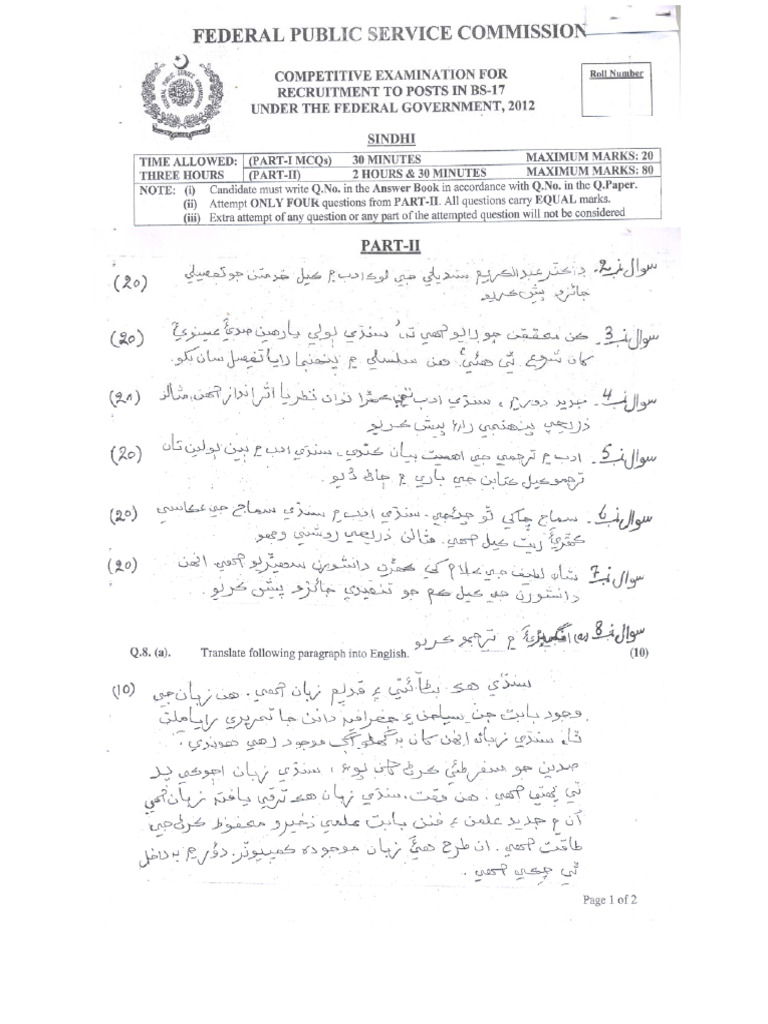 FEDERAL PUBLIC SERVICE COMMISSION
COMPETITIVE EXAMINATION FOR
RECRUITMENT TO POSTS IN BS-17
UNDER THE FEDERAL GOVERNMENT, 2012
Roll Number
SINDHI
TIME ALLOWED: (PART-I MCQs) 30 MINUTES MAXIMUM MARKS: 20
THREE HOURS (PART-II) 2 HOURS & 30 MINUTES MAXIMUM MARKS: 80
NOTE: (i) Candidate must write Q.No. in the Answer Book in accordance with Q.No. in the Q.Paper.
(ii) Attempt ONLY FOUR questions from PART-II. All questions carry EQUAL marks.
(iii) Extra attempt of any question or any part of the attempted question will not be considered
PART-II
سوال نمبر 2۔ ڊاڪٽر عبدالڪريم سنديلي جي لوڪ ادب ۾ ڪيل خدمتن جو تفصيلي (20)
جائزو پيش ڪريو
سوال نمبر 3۔ ڪن محققن جو رايو آهي ته سنڌي ٻولي يارهين صدي عيسوي (20)
کان شروع ٿي هئي. هن سلسلي ۾ پنهنجا رايا تفصيل سان لکو.
سوال نمبر 4۔ جديد دور ۾، سنڌي ادب تي ڪهڙا نوان نظريا اثرانداز آهن، مثالن (20)
ذريعي پنهنجي راءِ پيش ڪريو
سوال نمبر 5۔ ادب ۾ ترجمي جي اهميت بيان ڪندي، سنڌي ادب ۾ ٻين ٻولين تان (20)
ترجمو ڪيل ڪتابن جي باري ۾ ڄاڻ ڏيو.
سوال نمبر 6۔ سماج ڇا کي ٿو چئجي. سنڌي ادب ۾ سنڌي سماج جي عڪاسي (20)
ڪهڙي ريت ڪيل آهي. مثالن ذريعي روشني وجهو
سوال نمبر 7۔ شاه لطيف جي ڪلام کي ڪهڙن دانشورن سهيڙيو آهي انهن (20)
دانشورن جي ڪيل ڪم جو تنقيدي جائزو پيش ڪريو.
سوال نمبر 8 (a) انگريزي ۾ ترجمو ڪريو
Q.8. (a). Translate following paragraph into English. (10)
(10) سنڌي هڪ ۽ قديم زبان آهي. هن زبان جي
وجود بابت جن سياحن ۽ جغرافيه دانن جا تحريري رايا ملن
ٿا. سنڌي زبان انهن کان به گهڻو اڳ موجود رهي هوندي.
صدين جو سفر طئي ڪرڻ کان پوءِ، سنڌي زبان اڄوڪي پد
تي پهتي آهي. هن وقت، سنڌي زبان هڪ ترقي يافته زبان آهي
ان ۾ جديد علمن ۽ فنن بابت علمي ذخيرو محفوظ ڪرڻ جي
طاقت آهي. ان طرح هيءَ زبان موجوده ڪمپيوٽر دؤر ۾ به داخل
ٿي چڪي آهي.
Page 1 of 2